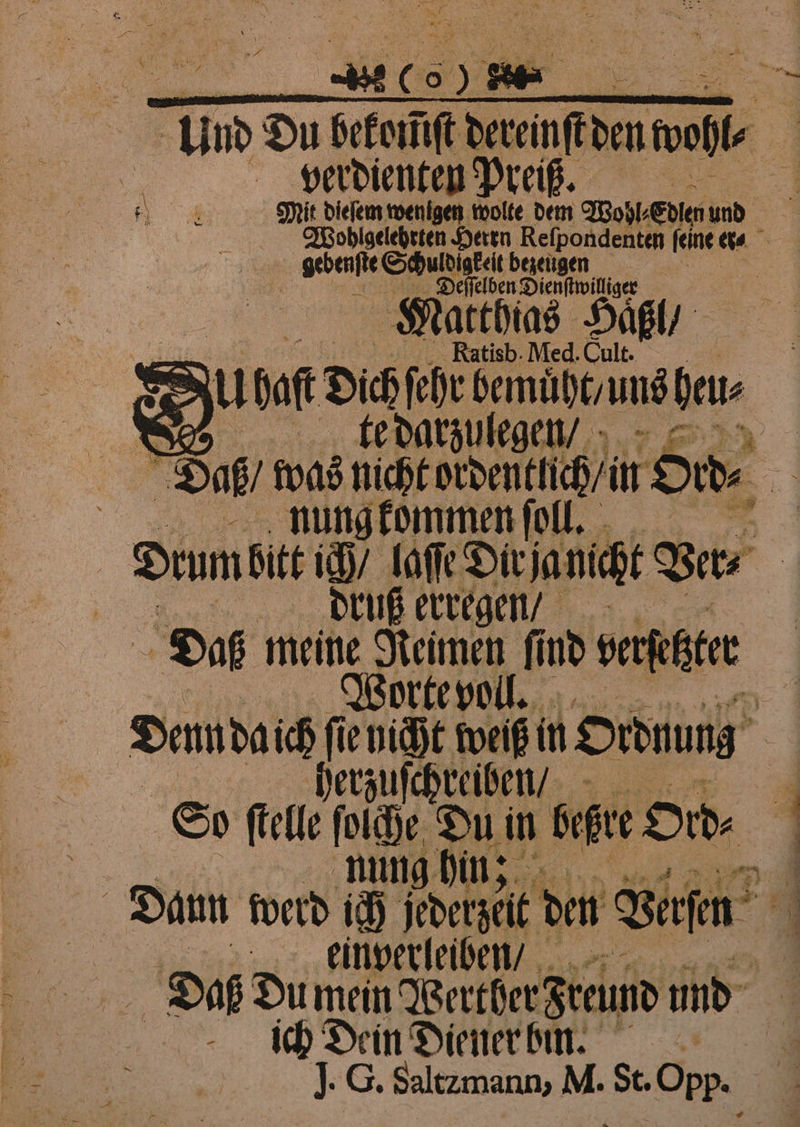 (o)
Und Du bekom̃ſt dereinſt den wohl⸗
verdienten Preiß.
Mit dieſem wenigen wolte dem Wohl⸗Edlen und
Wohlgelehrten Herrn Reſpondenten ſeine er⸗
gebenſte Schuldigkeit bezeugen
Deſſelben Dienſtwilliger
Matthias Haͤßl/
Ratisb. Med. Cult.
DU haſt Dich ſehr bemuͤht/ uns heu⸗
te darzulegen/
Daß/ was nicht ordentlich/ in Ord⸗
nung kommen ſoll.
Drum bitt ich/ laſſe Dir ja nicht Ver⸗
druß erregen/
Daß meine Reimen ſind verſetzter
Worte voll.
Denn da ich ſie nicht weiß in Ordnung
herzuſchreiben/
So ſtelle ſolche Du in beßre Ord⸗
nung hin;
Dann werd ich jederzeit den Verſen
einverleiben/
Daß Du mein Werther Freund und
ich Dein Diener bin.
J. G. Saltzmann, M. St. Opp.